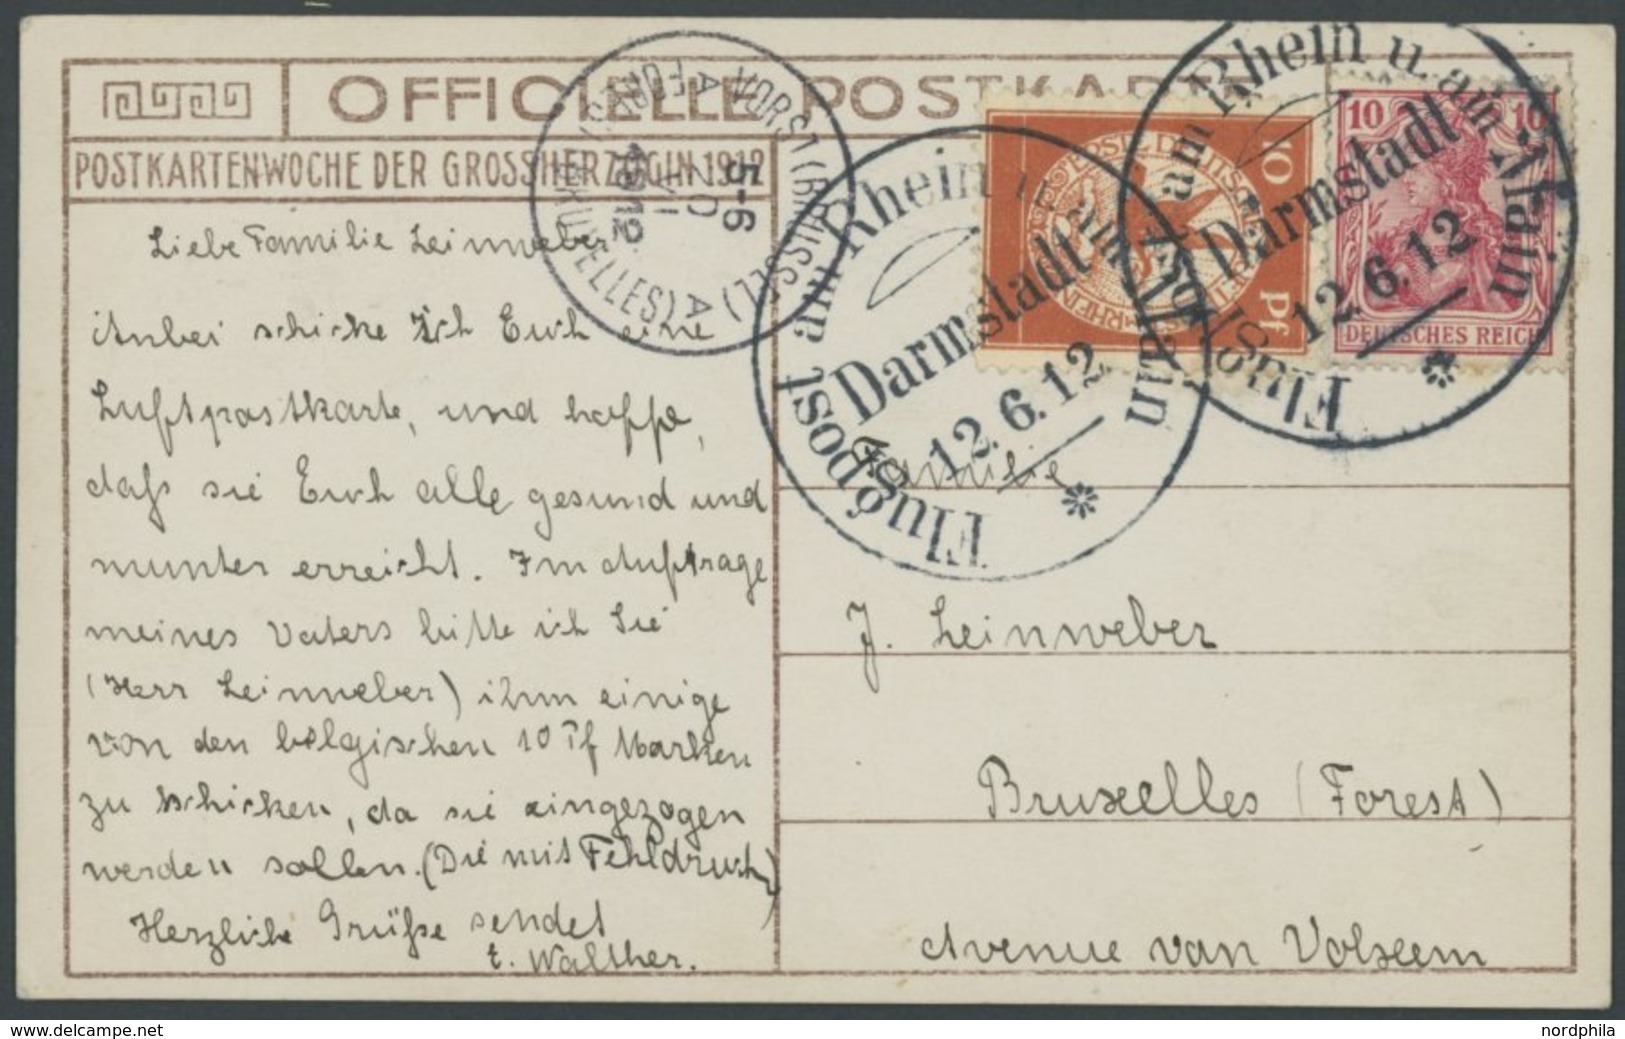 OFFICIELLE POSTKARTE
POSTKARTENWOCHE DER GROSSHERZOGIN 1912
Liebe Familie Leinweber
Anbei schicke ich Euch eine
Luftpostkarte, und hoffe,
daß sie Euch alle gesund und
munter erreicht. Im Auftrage
meines Vaters bitte ich Sie
(Herr Leinweber) ihm einige
von den belgischen 10 Pf Marken
zu schicken, da sie eingezogen
werden sollen. (Die mit Fehldruck)
Herzliche Grüße sendet
t. Walther.
VORST (BRUSSEL)
FOREST (BRUXELLES)
5-6
VI
1912
Flugpost am Rhein u. am Main
Darmstadt
12.6.12
Flugpost am Rhein u. am Main
Darmstadt
12.6.12
10 Pf
10 10
DEUTSCHES REICH
Familie
J. Leinweber
Bruxelles (Forest)
Avenue van Volxem
www.delcampe.net
nordphila